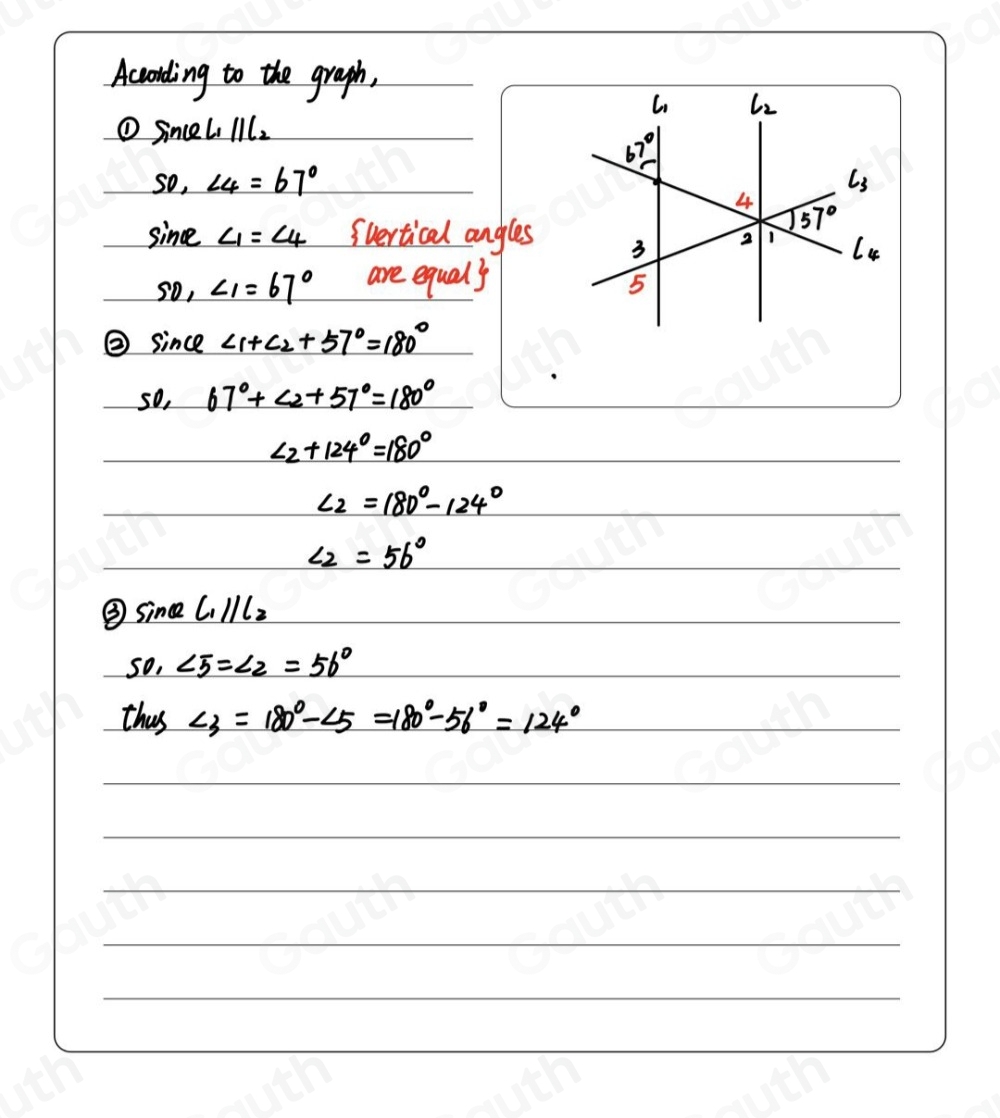 According to the graph,
① Since L1 // L2
so, ∠4 = 67°
since ∠1 = ∠4 {vertical angles
are equal}
so, ∠1 = 67°
② Since ∠1+∠2+57°=180°
so, 67°+∠2+57°=180°
∠2+124°=180°
∠2 = 180°-124°
∠2 = 56°
③ since L1 // L2
so, ∠5=∠2 = 56°
thus ∠3 = 180°-∠5 =180°-56° = 124°
L1 L2
67°
L3
4
57°
3 2 1
L4
5
Gauth